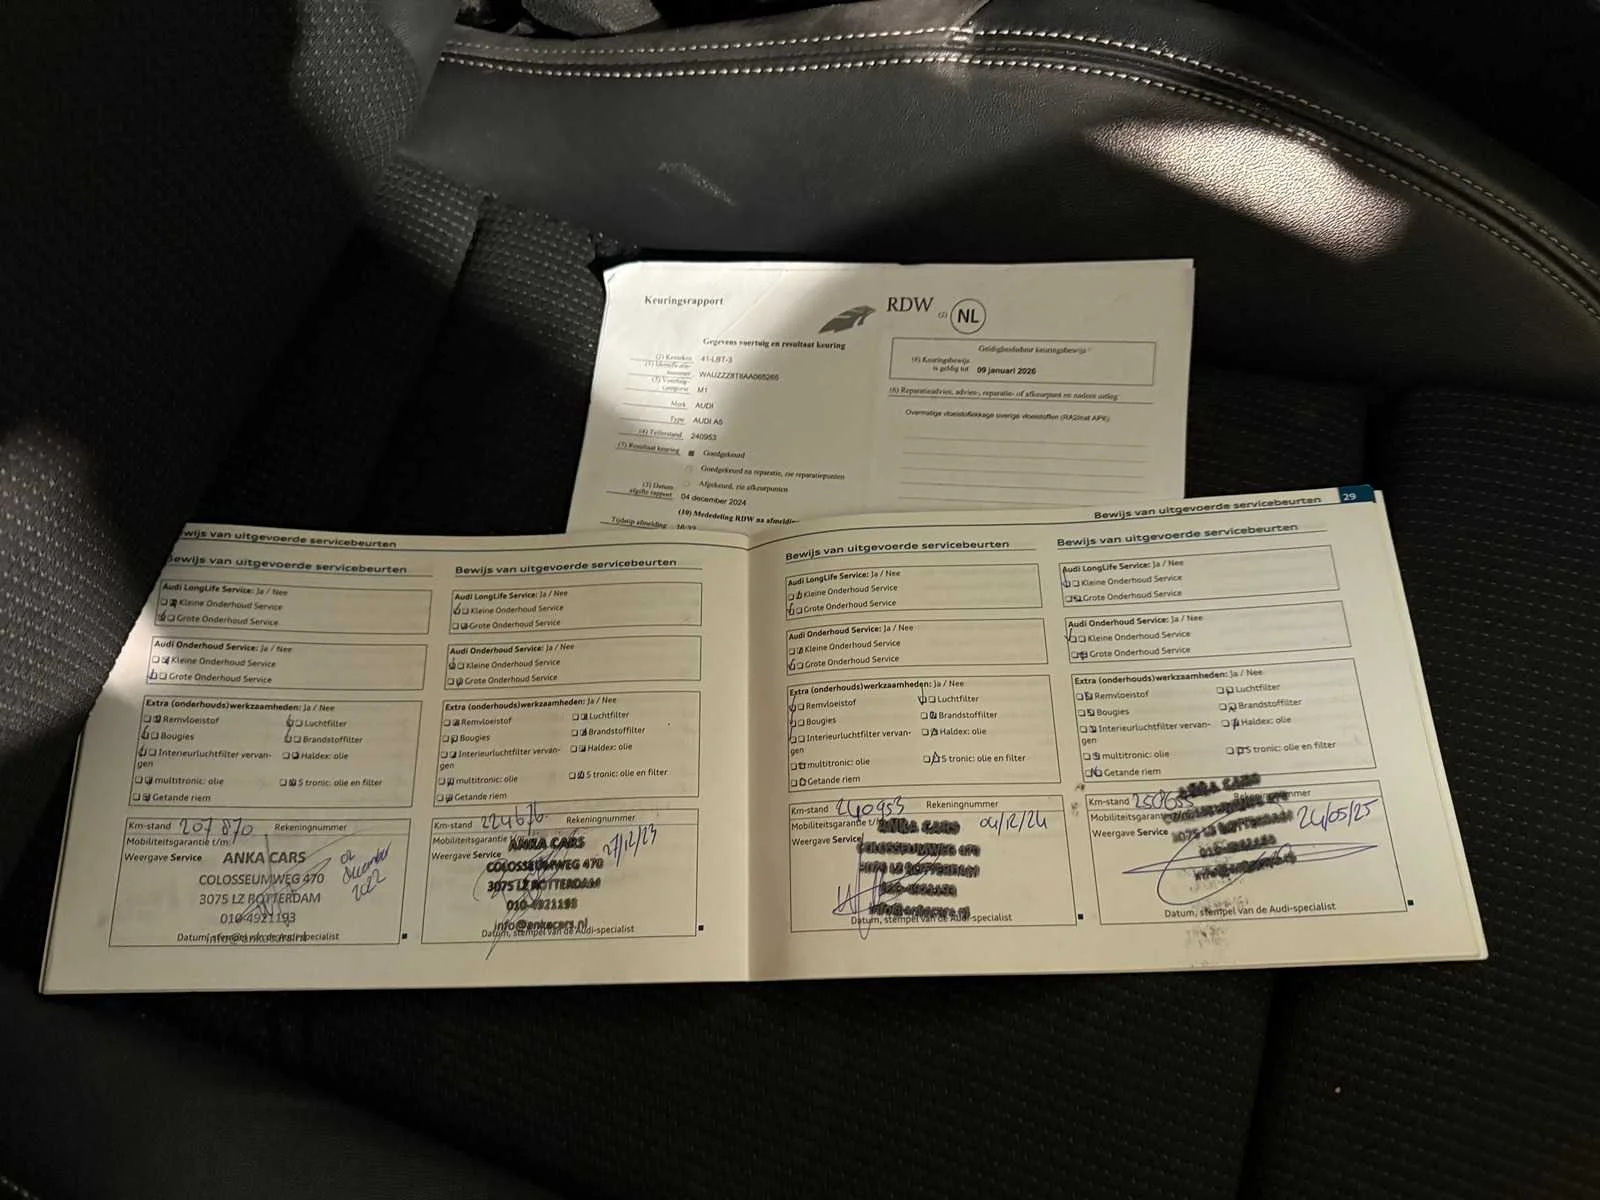 Keuringsrapport
RDW (2) NL
Gegevens voertuig en resultaat keuring
(2) Kenteken 41-LBT-3
(1) Identificatie-
nummer WAUZZZ8T8AA065265
(5) Voertuig-
categorie M1
Merk AUDI
Type AUDI A5
(4) Tellerstand 240953
(7) Resultaat keuring Goedgekeurd
Goedgekeurd na reparatie, zie reparatiepunten
Afgekeurd, zie afkeurpunten
(3) Datum
afgifte rapport 04 december 2024
(10) Mededeling RDW na afmeldin
Tijdstip afmelding
Geldigheidsduur keuringsbewijs
(8) Keuringsbewijs
is geldig tot 09 januari 2026
(6) Reparatieadvies, advies-, reparatie- of afkeurpunt en nadere uitleg
Overmatige vloeistoflekkage overige vloeistoffen (RA2/nat APK)
ewijs van uitgevoerde servicebeurten
Bewijs van uitgevoerde servicebeurten
Audi LongLife Service: Ja / Nee
Kleine Onderhoud Service
Grote Onderhoud Service
Audi Onderhoud Service: Ja / Nee
Kleine Onderhoud Service
Grote Onderhoud Service
Extra (onderhouds)werkzaamheden: Ja / Nee
Remvloeistof Luchtfilter
Bougies Brandstoffilter
Interieurluchtfilter vervan-
gen Haldex: olie
multitronic: olie S tronic: olie en filter
Getande riem
Km-stand 207 870 Rekeningnummer
Mobiliteitsgarantie t/m:
Weergave Service
ANKA CARS
COLOSSEUMWEG 470
3075 LZ ROTTERDAM
010-4921193
info@ankacars.nl
02
december
2022
Datum, stempel van de Audi-specialist
Bewijs van uitgevoerde servicebeurten
Audi LongLife Service: Ja / Nee
Kleine Onderhoud Service
Grote Onderhoud Service
Audi Onderhoud Service: Ja / Nee
Kleine Onderhoud Service
Grote Onderhoud Service
Extra (onderhouds)werkzaamheden: Ja / Nee
Remvloeistof Luchtfilter
Bougies Brandstoffilter
Interieurluchtfilter vervan-
gen Haldex: olie
multitronic: olie S tronic: olie en filter
Getande riem
Km-stand 224676 Rekeningnummer
Mobiliteitsgarantie
Weergave Service
ANKA CARS
COLOSSEUMWEG 470
3075 LZ ROTTERDAM
010-4921193
info@ankacars.nl
27/12/23
Datum, stempel van de Audi-specialist
Bewijs van uitgevoerde servicebeurten
Audi LongLife Service: Ja / Nee
Kleine Onderhoud Service
Grote Onderhoud Service
Audi Onderhoud Service: Ja / Nee
Kleine Onderhoud Service
Grote Onderhoud Service
Extra (onderhouds)werkzaamheden: Ja / Nee
Remvloeistof Luchtfilter
Bougies Brandstoffilter
Interieurluchtfilter vervan-
gen Haldex: olie
multitronic: olie S tronic: olie en filter
Getande riem
Km-stand 240953 Rekeningnummer
Mobiliteitsgarantie t/m
Weergave Service
ANKA CARS
COLOSSEUMWEG 470
3075 LZ ROTTERDAM
010-4921193
info@ankacars.nl
04/12/24
Datum, stempel van de Audi-specialist
Bewijs van uitgevoerde servicebeurten 29
Bewijs van uitgevoerde servicebeurten
Audi LongLife Service: Ja / Nee
Kleine Onderhoud Service
Grote Onderhoud Service
Audi Onderhoud Service: Ja / Nee
Kleine Onderhoud Service
Grote Onderhoud Service
Extra (onderhouds)werkzaamheden: Ja / Nee
Remvloeistof Luchtfilter
Bougies Brandstoffilter
Interieurluchtfilter vervan-
gen Haldex: olie
multitronic: olie S tronic: olie en filter
Getande riem
Km-stand
Mobiliteitsgarantie
Weergave Service
ANKA CARS
COLOSSEUMWEG 470
3075 LZ ROTTERDAM
010-4921193
info@ankacars.nl
24/05/25
Datum, stempel van de Audi-specialist